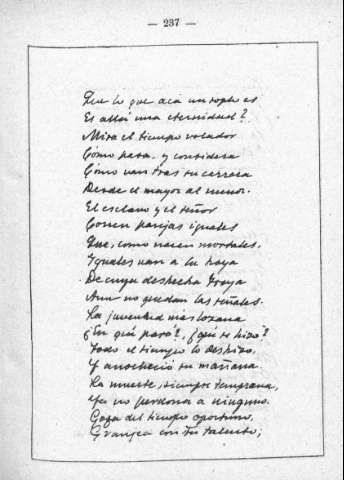 — 237 —
Que lo que acá un soplo es
Es allá una eternidad?
Mira el tiempo volador
Cómo pasa, y considera
Cómo van tras su carrera
Desde el mayor al menor.
El esclavo y el señor
Corren parejas iguales
Que, como nacen mortales,
Iguales van a la hoya
De cuya deshecha Troya
Aun no quedan las señales.
La juventud más lozana
¿En qué paró?, ¿qué se hizo?
Todo el tiempo lo deshizo,
Y anocheció su mañana.
La muerte, siempre temprana,
Ya no perdona a ninguno.
Goza del tiempo oportuno,
Granjea con tu talento,